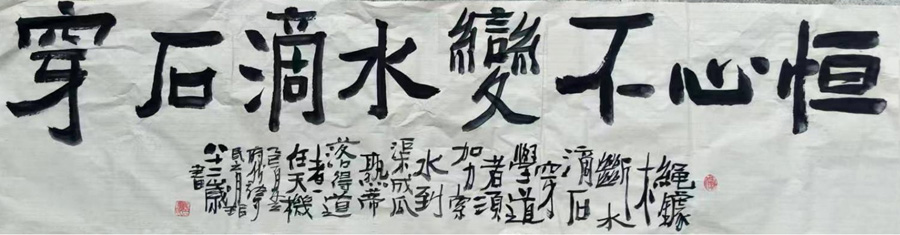 恒心不變水滴石穿
繩鋸
木
斷水
滴石
穿
學道
者須
加力索
水到
渠成瓜
熟蒂
落得道
者一
任天機
八十三歲
書